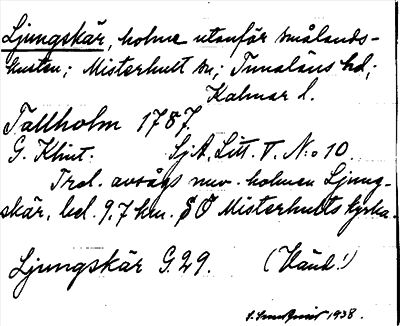 Ljungskär, holme utanför smålands-
kusten; Misterhult sn; Tunaläns hd;
Kalmar l.
Tallholm 1787.
G. Klint. SjA, Litt. V. N:o 10.
Trol. avsågs nuv. holmen Ljung-
skär, bel. 9,7 km. S Ö Misterhults kyrka.
Ljungskär G.29. (Vänd!)
1938.